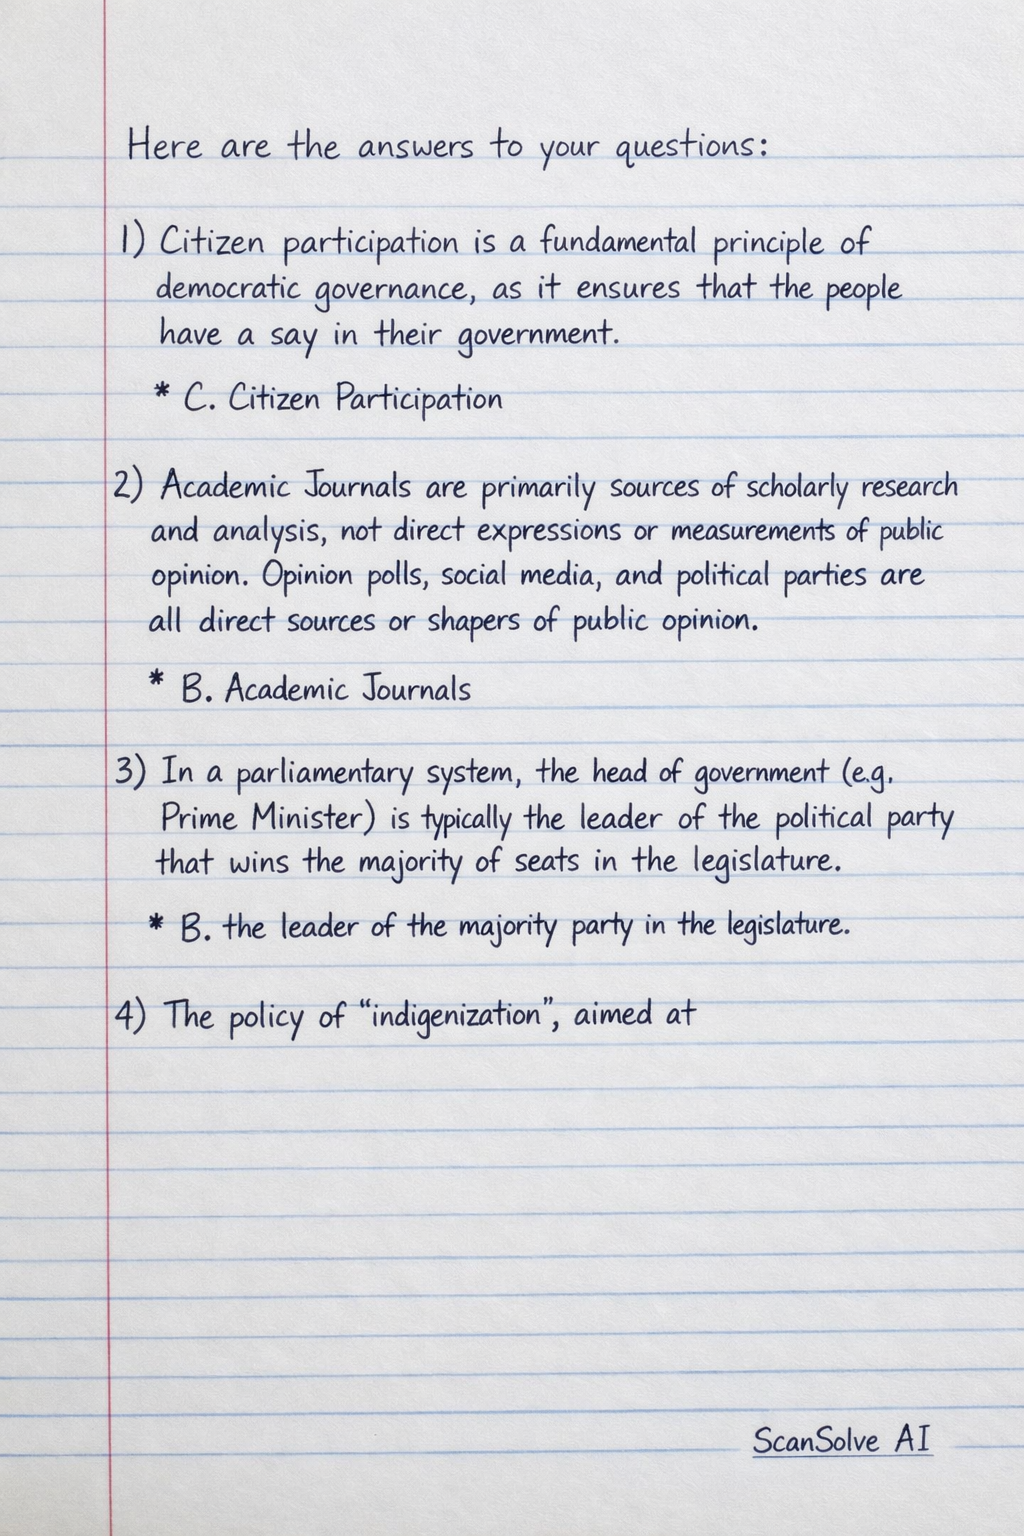 Here are the answers to your questions:
1) Citizen participation is a fundamental principle of
democratic governance, as it ensures that the people
have a say in their government.
* C. Citizen Participation
2) Academic Journals are primarily sources of scholarly research
and analysis, not direct expressions or measurements of public
opinion. Opinion polls, social media, and political parties are
all direct sources or shapers of public opinion.
* B. Academic Journals
3) In a parliamentary system, the head of government (e.g.
Prime Minister) is typically the leader of the political party
that wins the majority of seats in the legislature.
* B. the leader of the majority party in the legislature.
4) The policy of “indigenization”, aimed at
ScanSolve AI